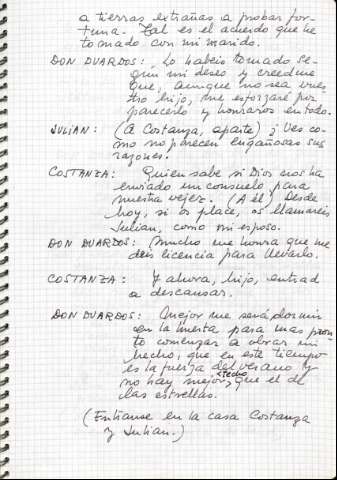 a tierras extrañas a probar for-
tuna. Tal es el acuerdo que he
tomado con mi marido.
DON DUARDOS: Lo habéis tomado se-
gún mi deseo y creedme
que, aunque no sea vues-
tro hijo, me esforzaré por
parecerlo y honraros en todo.
JULIAN: (A Costanza, aparte) ¿Ves co-
mo no parecen engañosas sus
razones.
COSTANZA: Quien sabe si Dios nos ha
enviado un consuelo para
nuestra vejez. (A él) Desde
hoy, si os place, os llamaréis
Julian, como mi esposo.
DON DUARDOS: Mucho me honra que me
deis licencia para llevarlo.
COSTANZA: Y ahora, hijo, entrad
a descansar.
DON DUARDOS: Mejor me será dormir
en la huerta para mas pron-
to comenzar a obrar mi
hecho, que en este tiempo
es la fuerza del verano y
no hay mejor techo que el de
las estrellas.
(Entranse en la casa Costanza
y Julian.)